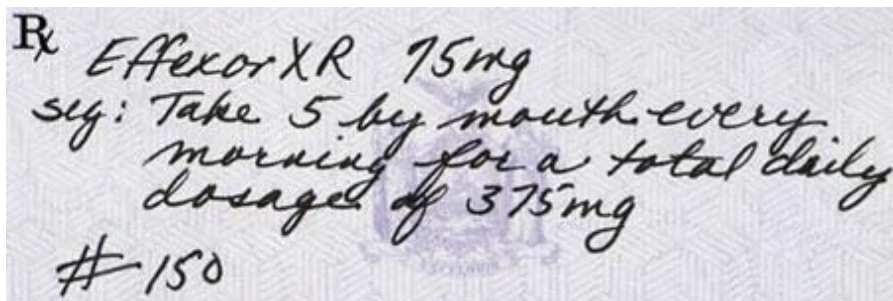 Rx
Effexor XR 75mg
sig: Take 5 by mouth every
morning for a total daily
dosage of 375mg
# 150
EXCELSIOR